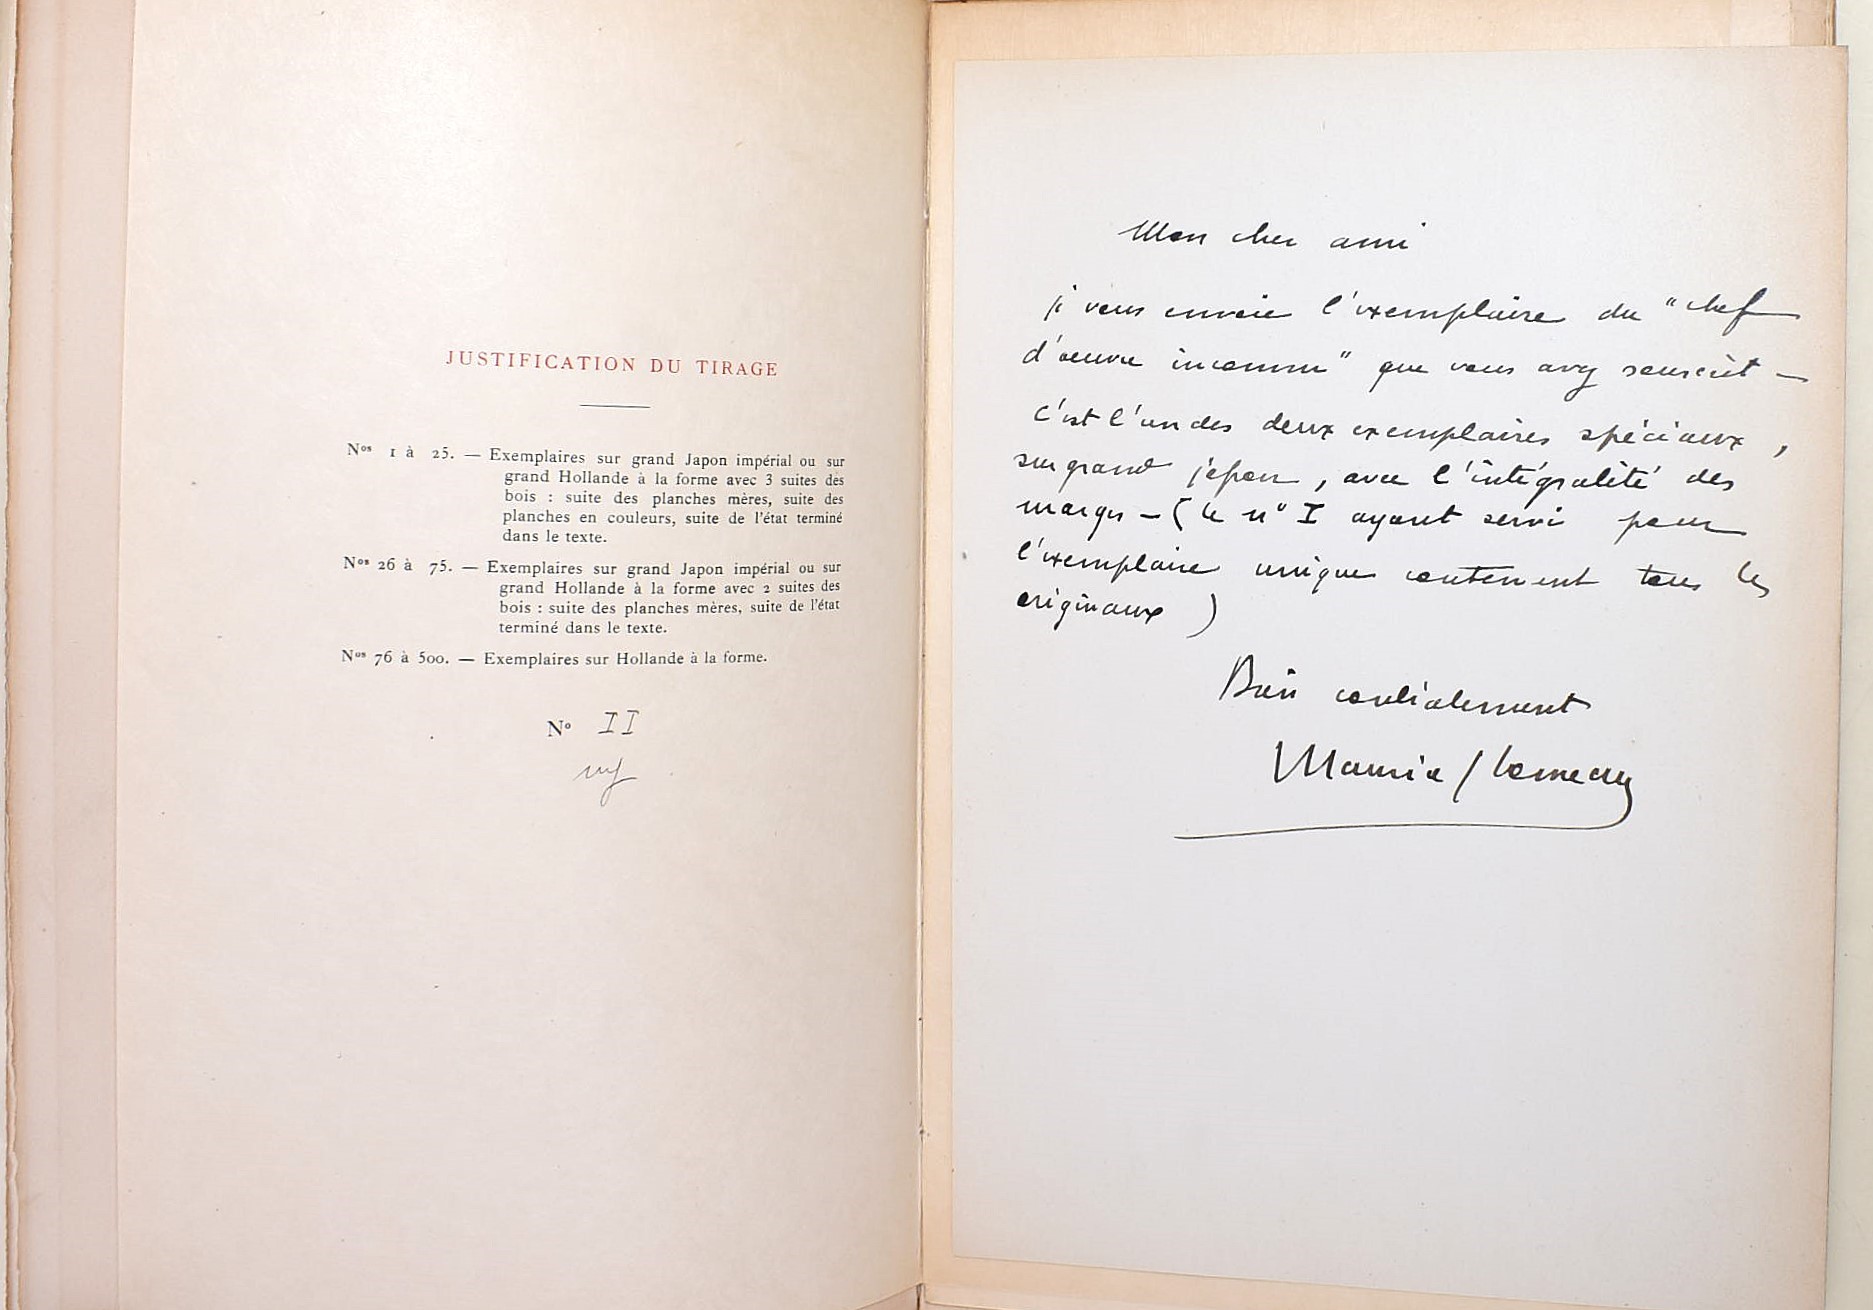 JUSTIFICATION DU TIRAGE
Nos 1 à 25. — Exemplaires sur grand Japon impérial ou sur
grand Hollande à la forme avec 3 suites des
bois : suite des planches mères, suite des
planches en couleurs, suite de l'état terminé
dans le texte.
Nos 26 à 75. — Exemplaires sur grand Japon impérial ou sur
grand Hollande à la forme avec 2 suites des
bois : suite des planches mères, suite de l'état
terminé dans le texte.
Nos 76 à 500. — Exemplaires sur Hollande à la forme.
No II
Mon cher ami
je vous envoie l'exemplaire du "chef
d'oeuvre inconnu" que vous avez souscrit —
c'est l'un des deux exemplaires spéciaux,
sur grand japon, avec l'intégralité des
marges — (le n° I ayant servi pour
l'exemplaire unique contenant tous les
originaux)
Bien cordialement
Maurice